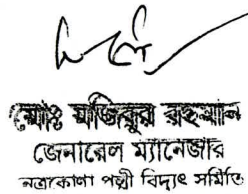 মোঃ মজিবুর রহমান
জেনারেল ম্যানেজার
নেত্রকোণা পল্লী বিদ্যুৎ সমিতি